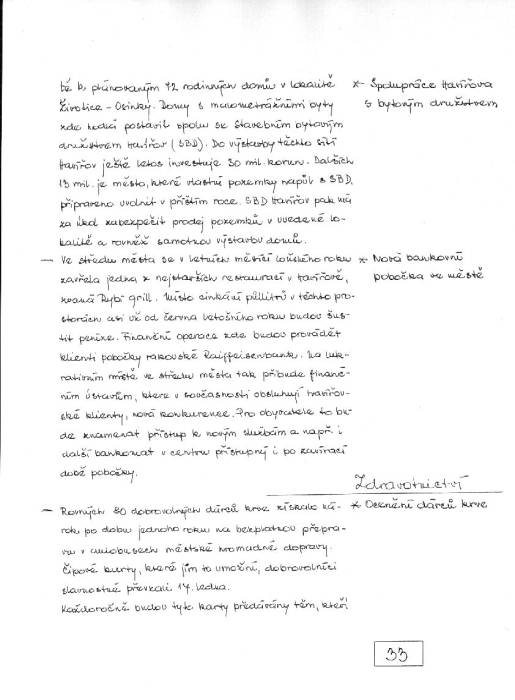 bě b, plánovaným 72 rodinných domů v lokalitě
* Spolupráce Havířova
s bytovým družstvem
Životice - Osinky. Domy s malometrážními byty
zde hodlá postavit spolu se Stavebním bytovým
družstvem Havířov (SBD). Do výstavby těchto sítí
Havířov ještě letos investuje 30 mil. korun. Dalších
13 mil. je město, které vlastní pozemky napůl s SBD,
připraveno uvolnit v příštím roce. SBD Havířov pak má
za úkol zabezpečit prodej pozemků v uvedené lo-
kalitě a rovněž samotnou výstavbu domů.
— Ve středu města se v letních měsíci loňského roku
* Nová bankovní
pobočka ve městě
zavřela jedna z nejstarších restaurací v Havířově,
zvaná Rybí grill. Místo cinkání půllitrů v těchto pro-
storách asi už od června letošního roku budou šus-
tit peníze. Finanční operace zde budou provádět
klienti pobočky rakouské Raiffeisenbank. Na luk-
rativním místě ve středu města tak přibude finanč-
ním ústavům, které v současnosti obsluhují havířov-
ské klienty, nová konkurence. Pro obyvatele to bu-
de znamenat přístup k novým službám a např. i
další bankomat v centru přístupný i po zavírací
době pobočky.
Zdravotnictví
— Rovných 30 dobrovolných dárců krve získalo ná-
* Ocenění dárců krve
rok po dobu jednoho roku na bezplatnou přepra-
vu v autobusech městské hromadné dopravy.
Čipové karty, které jim to umožní, dobrovolníci
slavnostně převzali 17. ledna.
Každoročně budou tyto karty předávány těm, kteří
33